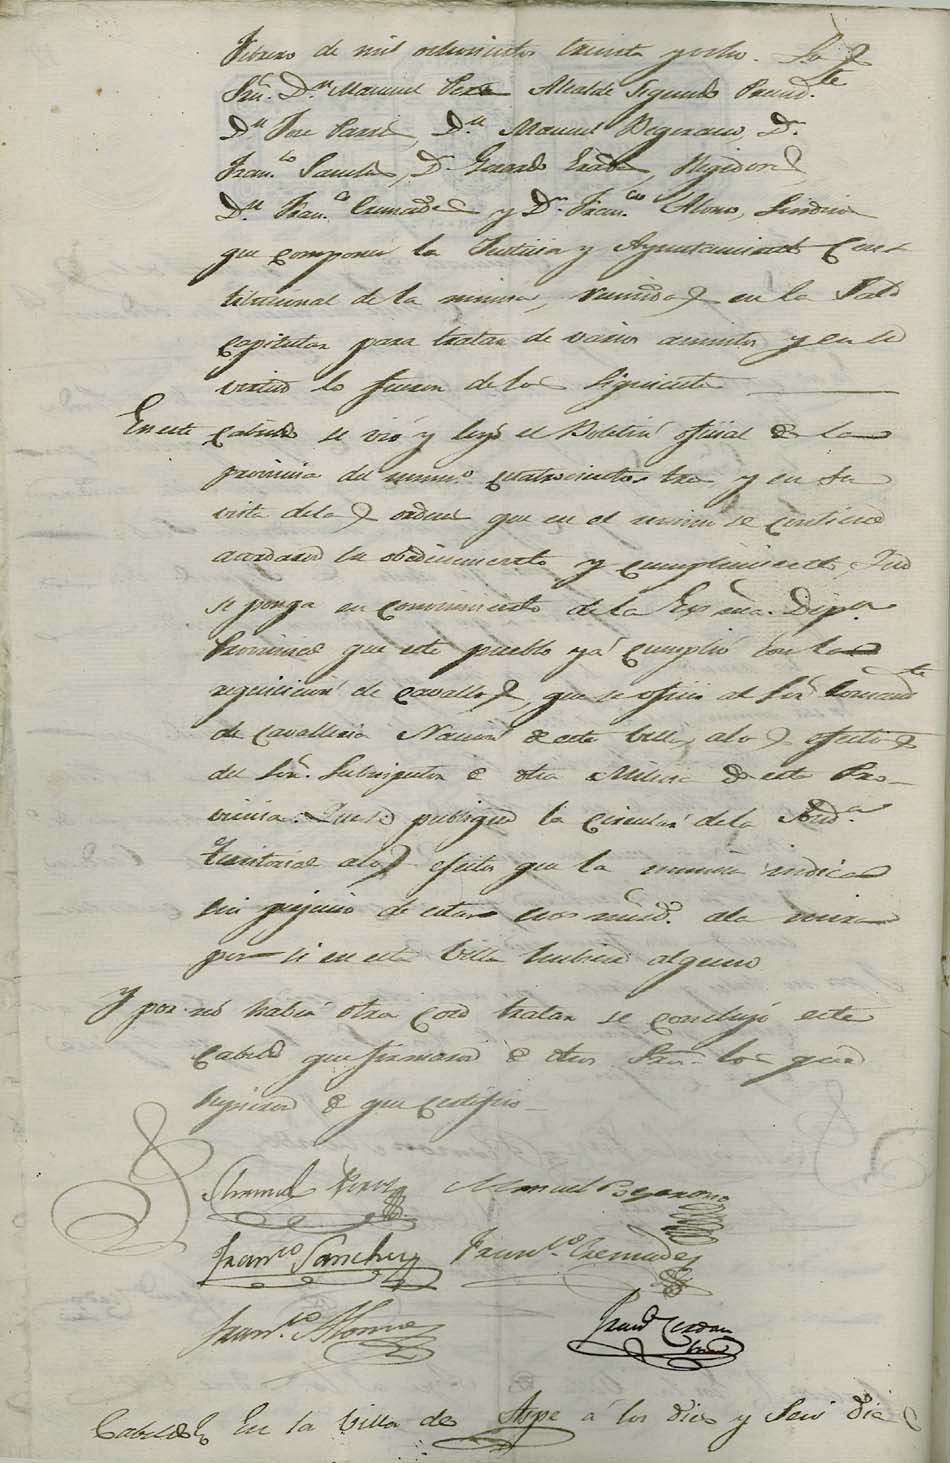 Febrero de mil ochocientos treinta y ocho. Los
Sres. Dn. Manuel Perez Alcalde Segundo Presidte.
Dn. Jose Dn. Manuel Begerano, Dn.
Franco. Sanchez, Dn. Gerardo Regidores
Dn. Franco. Cremades y Dn. Franco. Alonso, Sindico
que componen la Justicia y Ayuntamiento Cons
titucional de la misma, reunidos en la Sala
capitular para tratar de varios asuntos y en su
virtud lo fueron de los siguientes
En este cabildo se vió y leyó el Boletin oficial de la
provincia del numo. cuatrocientos tres y en su
vista de las ordenes que en el mismo se contienen
acordaron su obedecimiento y cumplimiento, Que
se ponga en conocimiento de la Exma. Dipon.
Provincial que este pueblo yá cumplió con la
requisicion de cavallos, que se oficie al Sor. Comandte
de Cavalleria Nacional de esta Villa a los efectos
del Sor. Subinspector de dha Milicia de esta Pro-
vincia. Que se publique la circular de la Auda.
territorial a los efectos que la misma indica
sin perjuicio de estar a la mira
por si en esta Villa hubiera alguno
Y por no haber otra cosa tratar se concluyó este
Cabildo que firmaron de dhos Sres. los que
supieron de que certifico
Manuel Perez Manuel Begerano
Franco Sanchez Franco. Cremades
Franco. Alonso
Cabildo En la Villa de Aspe á los dies y seis dias